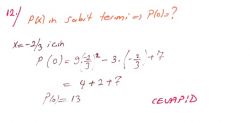 12./ P(x) in sabit terimi => P(0)=?
x=-2/3 icin
P(0) = 9.(-2/3)² - 3.(-2/3) + 7
= 4+2+7
P(0) = 13 CEVAP: D